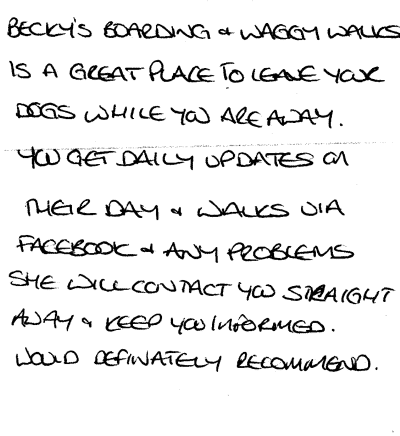 BECKY'S BOARDING & WAGGY WALKS
IS A GREAT PLACE TO LEAVE YOUR
DOGS WHILE YOU ARE AWAY.
YOU GET DAILY UPDATES ON
THEIR DAY & WALKS VIA
FACEBOOK & ANY PROBLEMS
SHE WILL CONTACT YOU STRAIGHT
AWAY & KEEP YOU INFORMED.
WOULD DEFINATELY RECOMMEND.